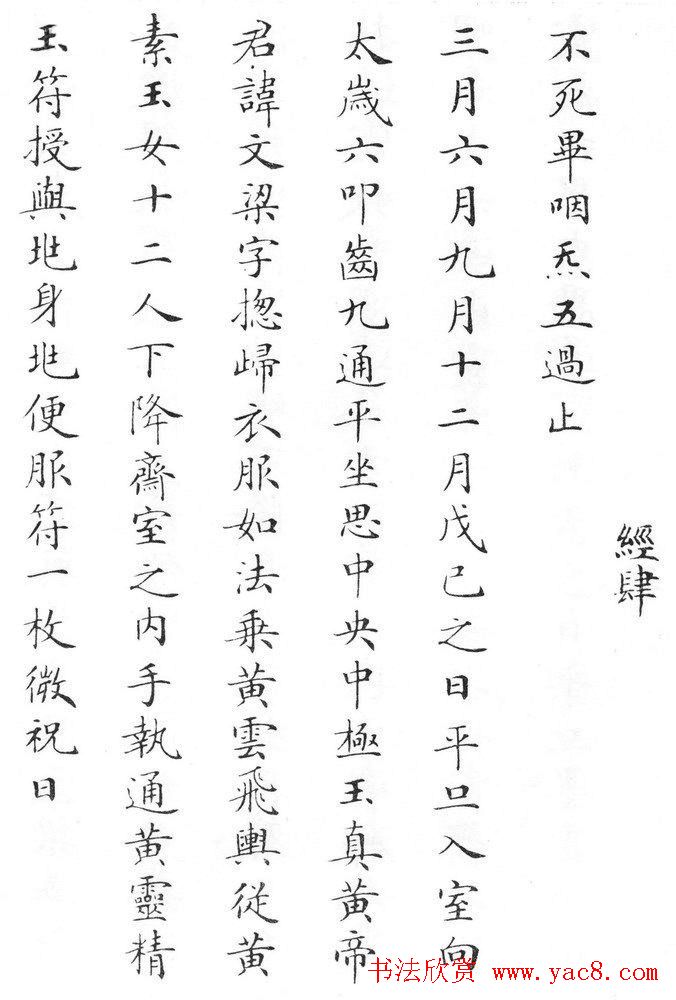 經肆
不死畢咽炁五過止
三月六月九月十二月戊己之日平旦入室向
太歲六叩齒九通平坐思中央中極玉真黃帝
君諱文梁字揔歸衣服如法乗黃雲飛輿從黃
素玉女十二人下降齋室之内手執通黃靈精
玉符授與兆身兆便服符一枚微祝曰
书法欣赏 www.yac8.com